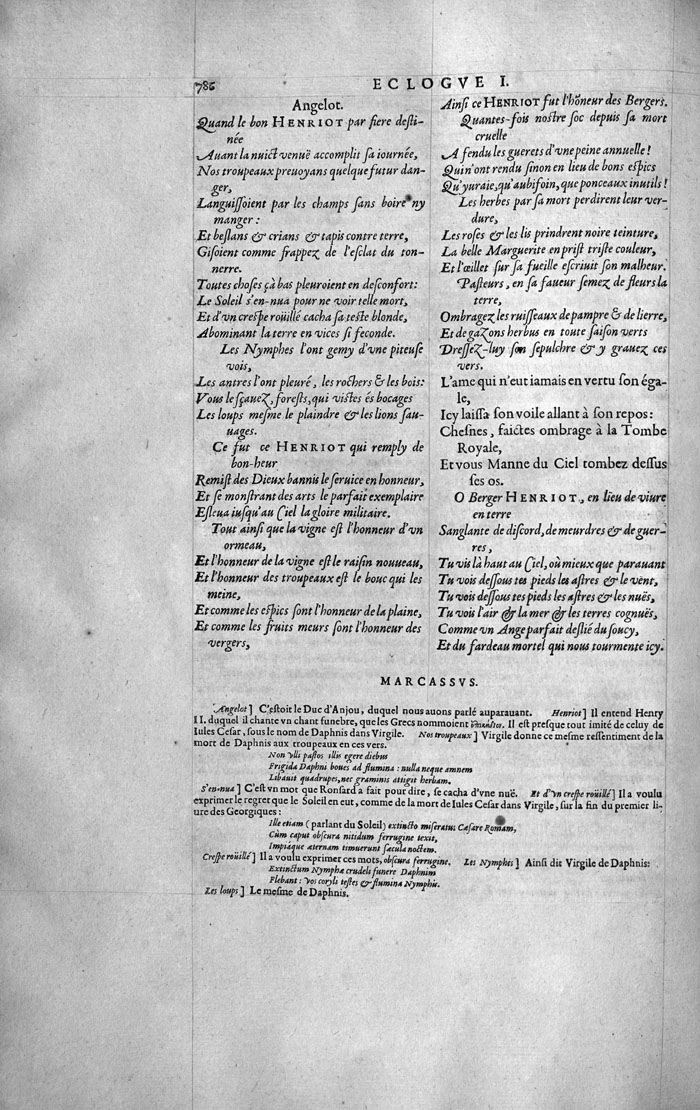 786
ECLOGVE I.
Angelot.
Quand le bon HENRIOT par fiere desti-
née
Auant la nuict venuë accomplit sa iournée,
Nos troupeaux preuoyans quelque futur dan-
ger,
Languissoient par les champs sans boire ny
manger :
Et beslans & crians & tapis contre terre,
Gisoient comme frappez de l'esclat du ton-
nerre.
Toutes choses çà bas pleuroient en desconfort:
Le Soleil s'en-nua pour ne voir telle mort,
Et d'vn crespe roüillé cacha sa teste blonde,
Abominant la terre en vices si feconde.
Les Nymphes l'ont gemy d'vne piteuse
vois,
Les antres l'ont pleuré, les rochers & les bois:
Vous le sçauez, forests, qui vistes és bocages
Les loups mesme le plaindre & les lions sau-
uages.
Ce fut ce HENRIOT qui remply de
bon-heur
Remist des Dieux bannis le seruice en honneur,
Et se monstrant des arts le parfait exemplaire
Esleua iusqu'au Ciel la gloire militaire.
Tout ainsi que la vigne est l'honneur d'vn
ormeau,
Et l'honneur de la vigne est le raisin nouueau,
Et l'honneur des troupeaux est le bouc qui les
meine,
Et comme les espics sont l'honneur de la plaine,
Et comme les fruits meurs sont l'honneur des
vergers,
Ainsi ce HENRIOT fut l'hõneur des Bergers.
Quantes-fois nostre soc depuis sa mort
cruelle
A fendu les guerets d'vne peine annuelle !
Qui n'ont rendu sinon en lieu de bons espics
Qu'yuraie, qu'aubifoin, que ponceaux inutils !
Les herbes par sa mort perdirent leur ver-
dure,
Les roses & les lis prindrent noire teinture,
La belle Marguerite en prist triste couleur,
Et l'œillet sur sa fueille escriuit son malheur.
Pasteurs, en sa faueur semez de fleurs la
terre,
Ombragez les ruisseaux de pampre & de lierre,
Et de gazons herbus en toute saison verts
Dressez-luy son sepulchre & y grauez ces
vers.
L'ame qui n'eut iamais en vertu son éga-
le,
Icy laissa son voile allant à son repos:
Chesnes, faictes ombrage à la Tombe
Royale,
Et vous Manne du Ciel tombez dessus
ses os.
O Berger HENRIOT, en lieu de viure
en terre
Sanglante de discord, de meurdres & de guer-
res,
Tu vis là haut au Ciel, où mieux que parauant
Tu vois dessous tes pieds les astres & le vent,
Tu vois dessous tes pieds les astres & les nuës,
Tu vois l'air & la mer & les terres cognuës,
Comme vn Ange parfait deslié du soucy,
Et du fardeau mortel qui nous tourmente icy.
MARCASSVS.
Angelot] C'estoit le Duc d'Anjou, duquel nous auons parlé auparauant. Henriot] Il entend Henry
II. duquel il chante vn chant funebre, que les Grecs nommoient Il est presque tout imité de celuy de
Iules Cesar, sous le nom de Daphnis dans Virgile. Nos troupeaux] Virgile donne ce mesme ressentiment de la
mort de Daphnis aux troupeaux en ces vers.
Non vlli pastos illis egere diebus
Frigida Daphni boues ad flumina : nulla neque amnem
Libauit quadrupes, nec graminis attigit herbam.
S'en-nua] C'est vn mot que Ronsard a fait pour dire, se cacha d'vne nuë. Et d'vn crespe roüillé] Il a voulu
exprimer le regret que le Soleil en eut, comme de la mort de Iules Cesar dans Virgile, sur la fin du premier li-
ure des Georgiques :
Ille etiam (parlant du Soleil) extincto miseratus Cæsare Romam,
Cùm caput obscura nitidum ferrugine texit,
Impiáque æternam timuerunt sæcula noctem.
Crespe roüillé] Il a voulu exprimer ces mots, obscura ferrugine. Les Nymphes] Ainsi dit Virgile de Daphnis:
Extinctum Nympha crudeli funere Daphnim
Flebant : vos coryli testes & flumina Nymphis.
Les loups] Le mesme de Daphnis.